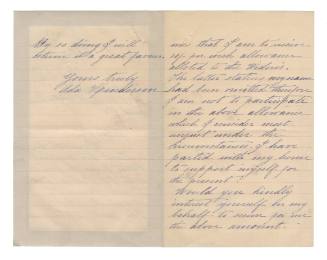 By so doing I will
esteem it a great favour.
Yours truly
Ada
was that I am to receive
no such allowance
allotted to the Widows.
The latter stating my name
had been omitted therefore
I am not to participate
in the above allowance
which I consider most
unjust under the
circumstances, I have
parted with my home
to support myself for
the present.
Would you kindly
interest yourself on my
behalf to secure for me
the above amount.